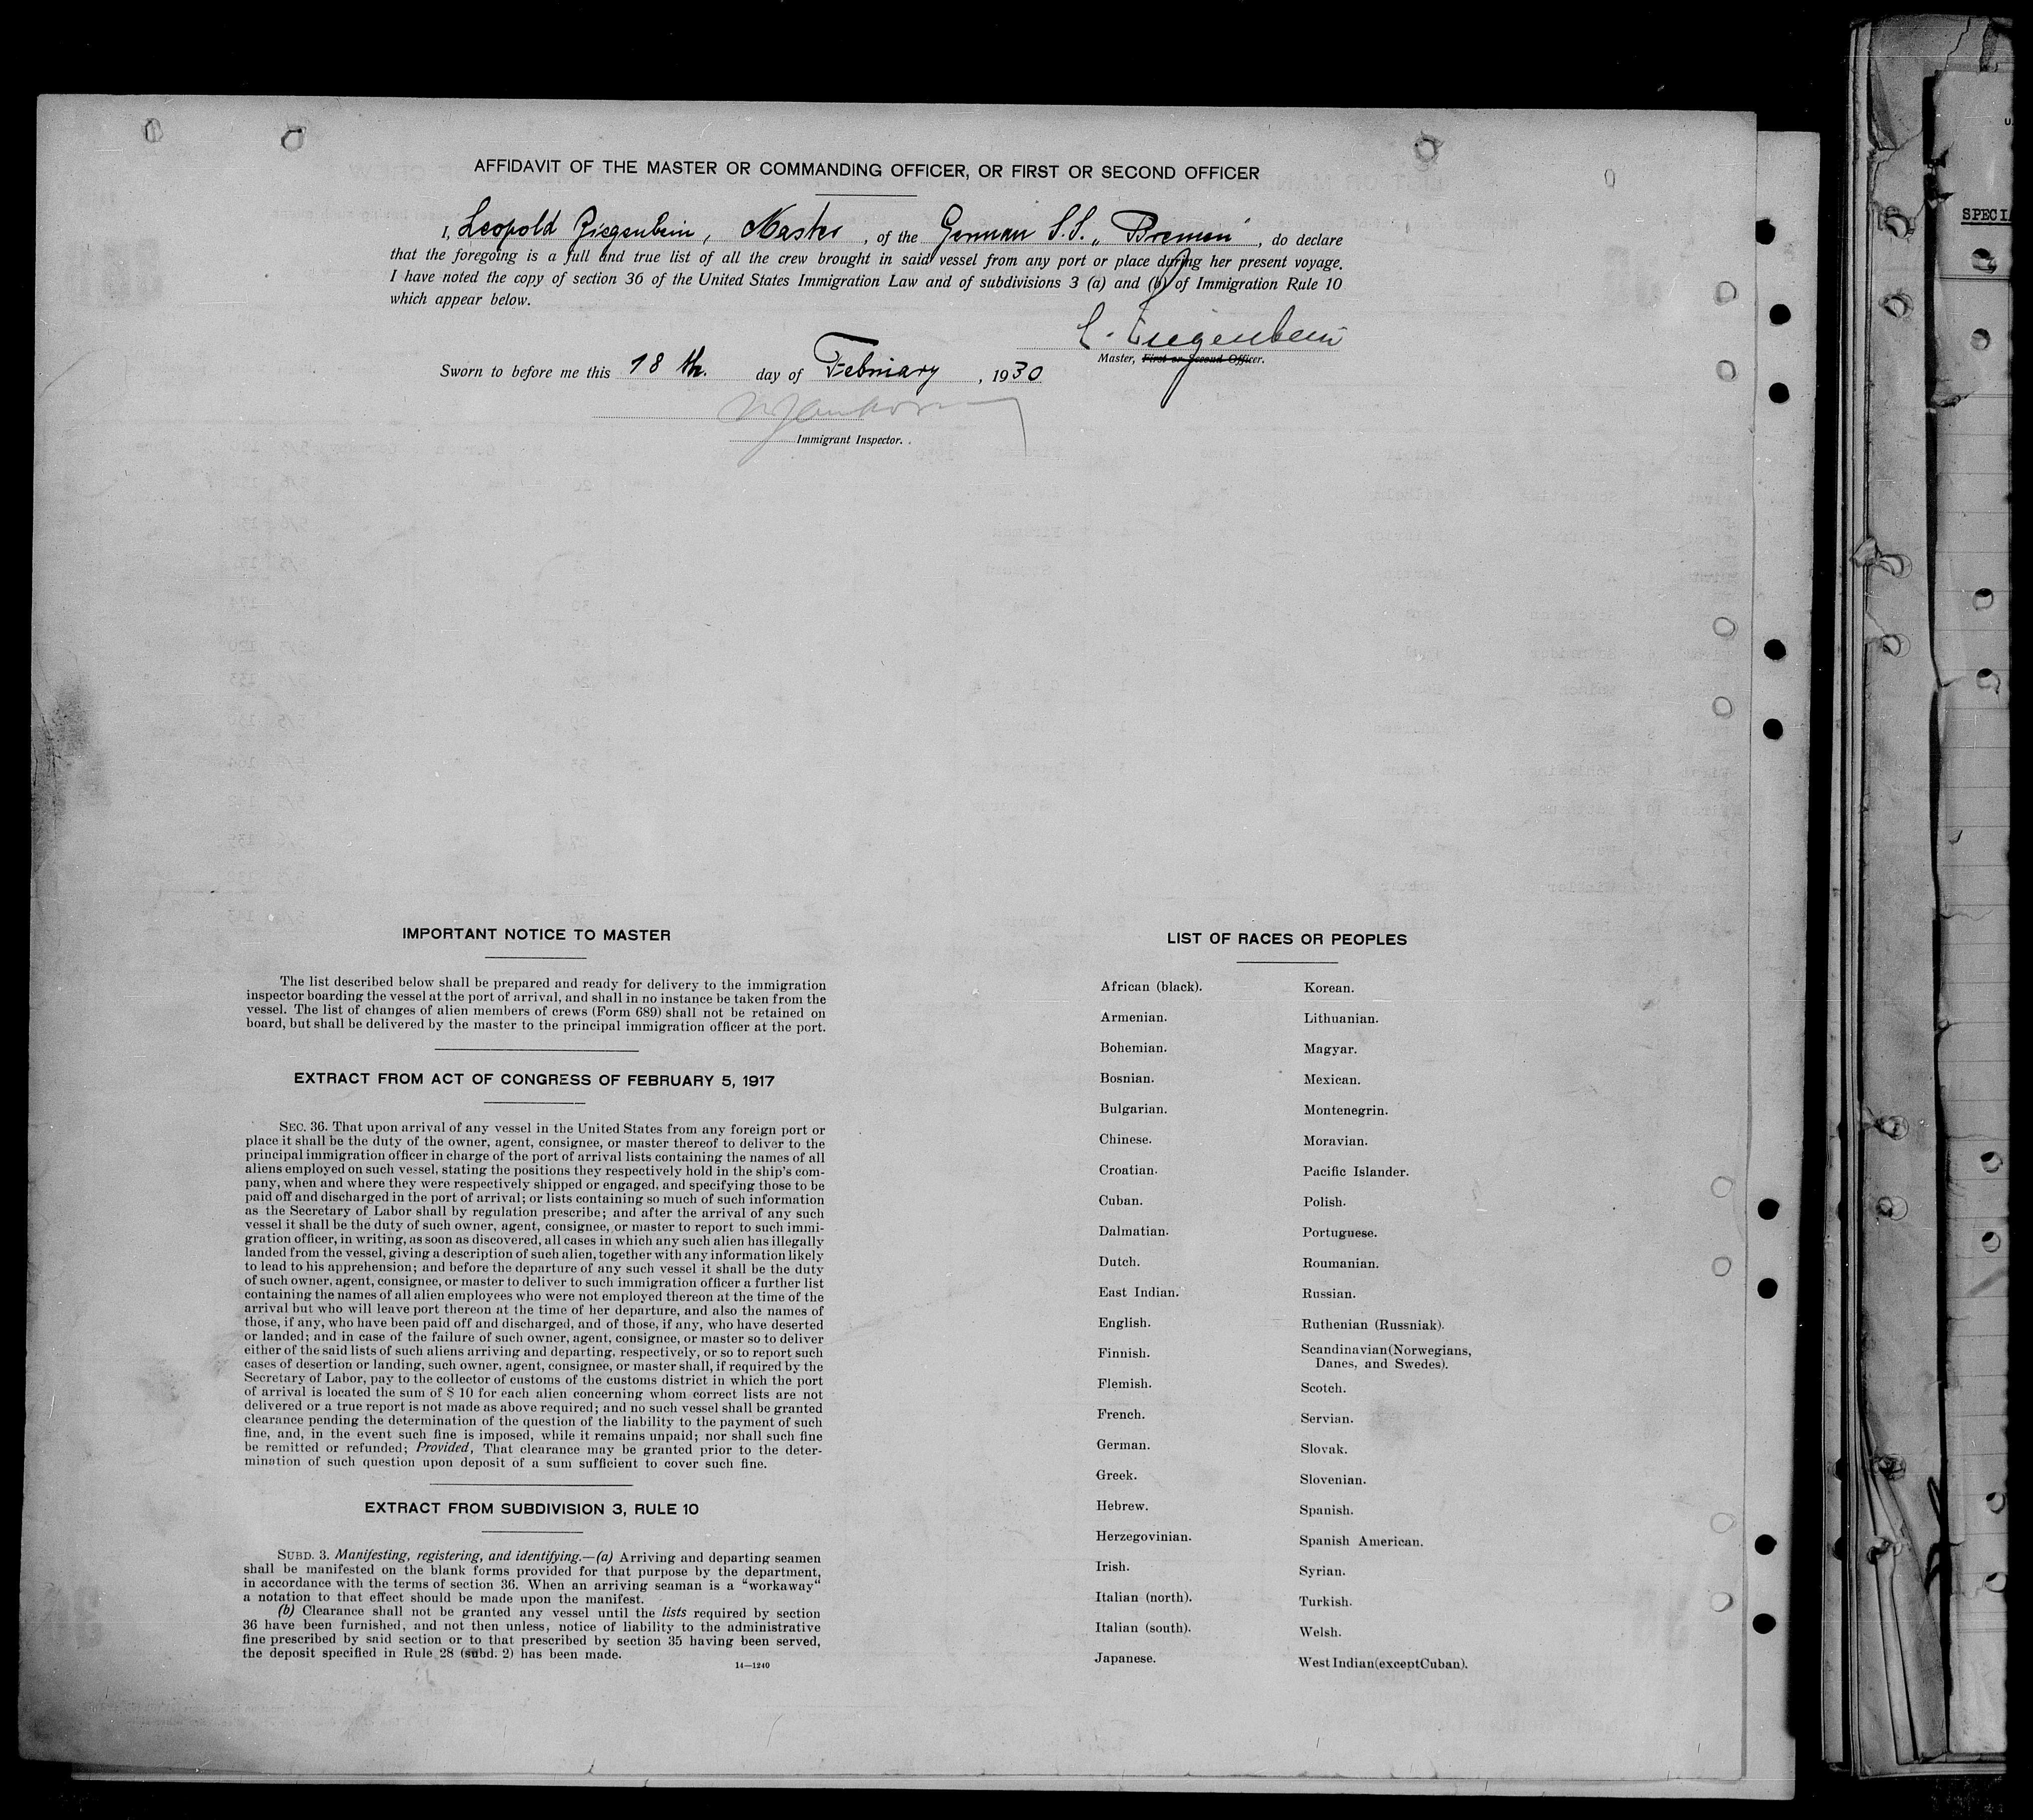 AFFIDAVIT OF THE MASTER OR COMMANDING OFFICER, OR FIRST OR SECOND OFFICER
I, Leopold Ziegenbein, Master, of the German S.S. „Bremen", do declare
that the foregoing is a full and true list of all the crew brought in said vessel from any port or place during her present voyage.
I have noted the copy of section 36 of the United States Immigration Law and of subdivisions 3 (a) and (b) of Immigration Rule 10
which appear below.
L. Ziegenbein
Master, First or Second Officer.
Sworn to before me this 18 th. day of February, 1930
Immigrant Inspector.
IMPORTANT NOTICE TO MASTER
The list described below shall be prepared and ready for delivery to the immigration
inspector boarding the vessel at the port of arrival, and shall in no instance be taken from the
vessel. The list of changes of alien members of crews (Form 689) shall not be retained on
board, but shall be delivered by the master to the principal immigration officer at the port.
EXTRACT FROM ACT OF CONGRESS OF FEBRUARY 5, 1917
SEC. 36. That upon arrival of any vessel in the United States from any foreign port or
place it shall be the duty of the owner, agent, consignee, or master thereof to deliver to the
principal immigration officer in charge of the port of arrival lists containing the names of all
aliens employed on such vessel, stating the positions they respectively hold in the ship's com-
pany, when and where they were respectively shipped or engaged, and specifying those to be
paid off and discharged in the port of arrival; or lists containing so much of such information
as the Secretary of Labor shall by regulation prescribe; and after the arrival of any such
vessel it shall be the duty of such owner, agent, consignee, or master to report to such immi-
gration officer, in writing, as soon as discovered, all cases in which any such alien has illegally
landed from the vessel, giving a description of such alien, together with any information likely
to lead to his apprehension; and before the departure of any such vessel it shall be the duty
of such owner, agent, consignee, or master to deliver to such immigration officer a further list
containing the names of all alien employees who were not employed thereon at the time of the
arrival but who will leave port thereon at the time of her departure, and also the names of
those, if any, who have been paid off and discharged, and of those, if any, who have deserted
or landed; and in case of the failure of such owner, agent, consignee, or master so to deliver
either of the said lists of such aliens arriving and departing, respectively, or so to report such
cases of desertion or landing, such owner, agent, consignee, or master shall, if required by the
Secretary of Labor, pay to the collector of customs of the customs district in which the port
of arrival is located the sum of $ 10 for each alien concerning whom correct lists are not
delivered or a true report is not made as above required; and no such vessel shall be granted
clearance pending the determination of the question of the liability to the payment of such
fine, and, in the event such fine is imposed, while it remains unpaid; nor shall such fine
be remitted or refunded; Provided, That clearance may be granted prior to the deter-
mination of such question upon deposit of a sum sufficient to cover such fine.
EXTRACT FROM SUBDIVISION 3, RULE 10
SUBD. 3. Manifesting, registering, and identifying.—(a) Arriving and departing seamen
shall be manifested on the blank forms provided for that purpose by the department,
in accordance with the terms of section 36. When an arriving seaman is a "workaway"
a notation to that effect should be made upon the manifest.
(b) Clearance shall not be granted any vessel until the lists required by section
36 have been furnished, and not then unless, notice of liability to the administrative
fine prescribed by said section or to that prescribed by section 35 having been served,
the deposit specified in Rule 28 (subd. 2) has been made.
14—1240
LIST OF RACES OR PEOPLES
African (black).
Armenian.
Bohemian.
Bosnian.
Bulgarian.
Chinese.
Croatian.
Cuban.
Dalmatian.
Dutch.
East Indian.
English.
Finnish.
Flemish.
French.
German.
Greek.
Hebrew.
Herzegovinian.
Irish.
Italian (north).
Italian (south).
Japanese.
Korean.
Lithuanian.
Magyar.
Mexican.
Montenegrin.
Moravian.
Pacific Islander.
Polish.
Portuguese.
Roumanian.
Russian.
Ruthenian (Russniak).
Scandinavian (Norwegians,
Danes, and Swedes).
Scotch.
Servian.
Slovak.
Slovenian.
Spanish.
Spanish American.
Syrian.
Turkish.
Welsh.
West Indian (except Cuban).